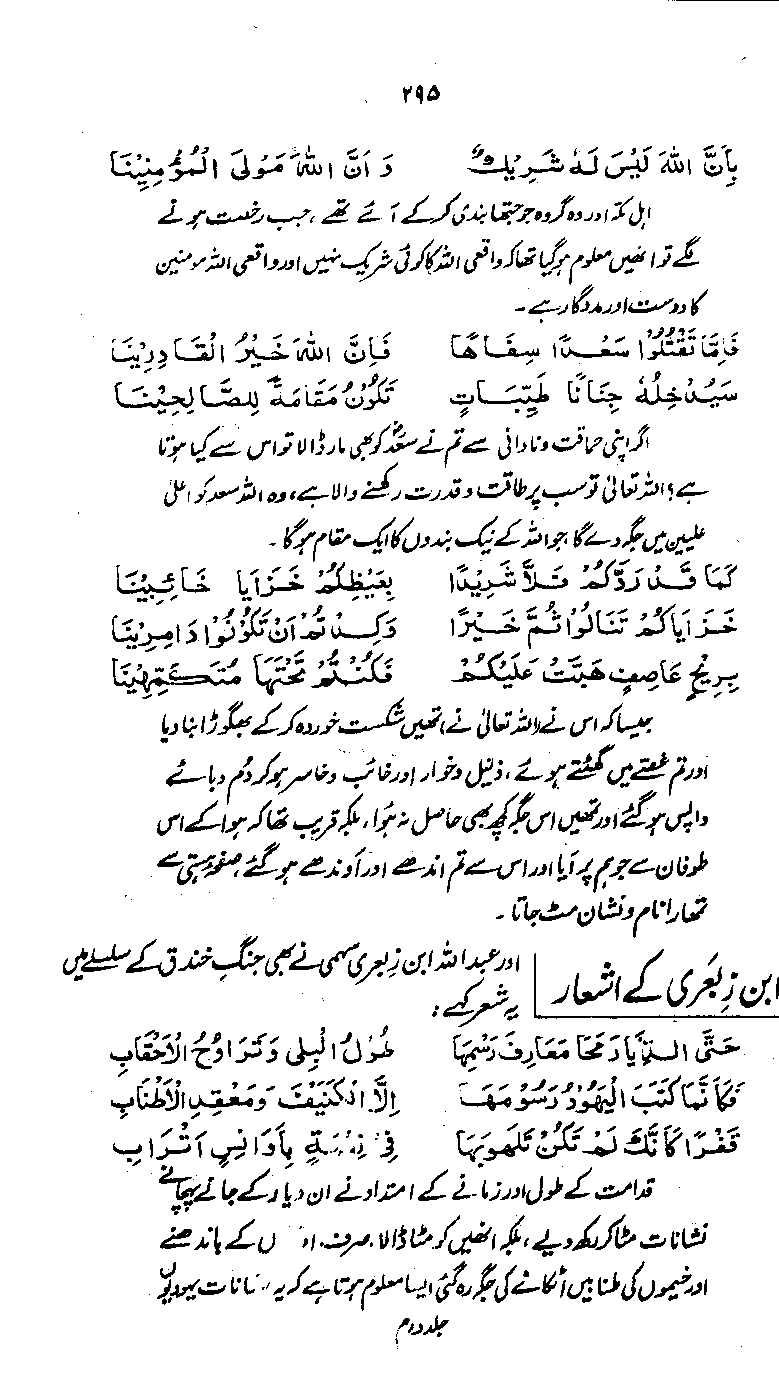 ۲۹۵
بِأَنَّ اللهَ لَيْسَ لَهُ شَرِيْكٌ وَ اَنَّ اللهَ مَوْلَى الْمُؤْمِنِيْنَا
اہل مکہ اور وہ گروہ جو جتھا بندی کر کے آئے تھے، جب رخصت ہونے
لگے تو انھیں معلوم ہوگیا تھا کہ واقعی اللہ کا کوئی شریک نہیں اور واقعی اللہ مومنین
کا دوست اور مددگار ہے۔
فَاِمَّا تَقْتُلُوْا سَعْدًا سِفَاهًا فَاِنَّ اللهَ خَيْرُ الْقَادِرِيْنَا
سَيُدْخِلُهُ جِنَانًا طَيِّبَاتٍ تَكُوْنُ مُقَامَةً لِلصَّالِحِيْنَا
اگر اپنی حماقت و نادانی سے تم نے سعدؓ کو بھی مار ڈالا تو اس سے کیا ہوتا
ہے؟ اللہ تعالیٰ تو سب پر طاقت و قدرت رکھنے والا ہے، وہ اللہ سعد کو اعلیٰ
علیین میں جگہ دے گا، جو اللہ کے نیک بندوں کا ایک مقام ہوگا۔
كَمَا قَدْ رَدَّكُمْ فَلًّا شَرِيْدًا بِغَيْظِكُمْ خَزَايَا خَائِبِيْنَا
خَزَايَاكُمْ تَنَالُوْا ثُمَّ خَيْرًا وَكِدْتُمْ اَنْ تَكُوْنُوْا دَامِرِيْنَا
بِرِيْحٍ عَاصِفٍ هَبَّتْ عَلَيْكُمْ فَكُنْتُمْ تَحْتَهَا مُتَكَمِّهِيْنَا
جیسا کہ اس نے (اللہ تعالیٰ نے) تمھیں شکست خوردہ کر کے بھگوڑا بنا دیا
اور تم غصے میں گھٹتے ہوئے، ذلیل و خوار اور خائب و خاسر ہو کر دُم دبائے
واپس ہوگئے اور تمھیں اس جگہ کچھ بھی حاصل نہ ہُوا، بلکہ قریب تھا کہ ہوا کے اس
طوفان سے جو تم پر آیا اور اس سے تم اندھے اور اوندھے ہوگئے، صفحۂ ہستی سے
تمھارا نام و نشان مٹ جاتا۔
ابن زِبَعری کے اشعار
اور عبداللہ ابن زِبعری سہمی نے بھی جنگِ خندق کے سلسلے میں
یہ شعر کہے:
حَتَّى الدِّيَارَ مَحَا مَعَارِفَ رَسْمِهَا طُوْلُ الْبِلٰى وَتَرَاوُحُ الْاَحْقَابِ
فَكَأَنَّمَا كَتَبَ الْيَهُوْدُ رُسُوْمَهَا اِلَّا الْكَنِيْفَ وَمَعْقِدِ الْاَطْنَابِ
قَفْرًا كَأَنَّكَ لَمْ تَكُنْ تَلْهُوْبِهَا فِیْ نِعْمَةٍ بِاَوَانِسٍ اَتْرَابِ
قدامت کے طول اور زمانے کے امتداد نے ان دیار کے جانے پہچانے
نشانات مٹا کر رکھ دیے، بلکہ انھیں کو مٹا ڈالا، صرف کے باندھنے
اور خیموں کی طنابیں اٹکانے کی جگہ رہ گئی ایسا معلوم ہوتا ہے کہ یہ یہودیوں
جلد دوم